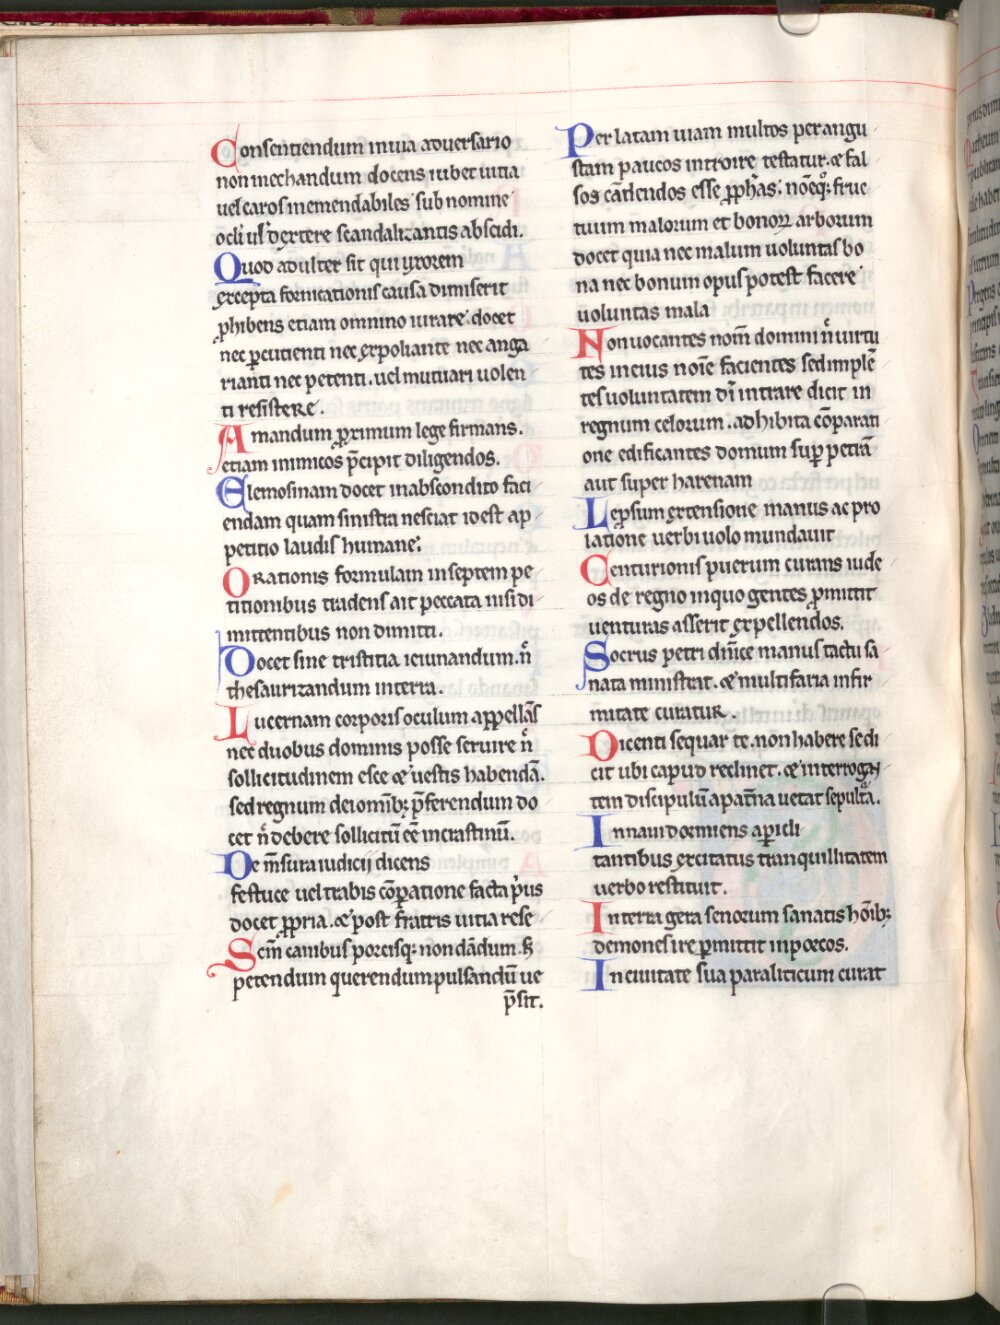 Consentiendum inuia aduersario
non mechandum docens iubet uitia
uel caros inemendabiles sub nomine
ocli ul' dextere scandalizantis abscidi.
Quod adulter sit qui uxorem
excepta fornicationis causa dimiserit
ꝓhibens etiam omnino iurare docet
nec ꝑcutienti nec expoliante nec anga
rianti nec petenti. uel mutuari uolen
ti resistere.
Amandum ꝓximum lege firmans.
etiam inimicos p̄cipit diligendos.
Elemosinam docet inabscondito faci
endam quam sinistra nesciat idest ap
petitio laudis humane.
Orationis formulam inseptem pe
titionibus tradens ait peccata nisi di
mittentibus non dimitti.
Docet sine tristitia ieiunandum. n̄
thesaurizandum interra.
Lucernam corporis oculum appellās
nec duobus dominis posse seruire n̄
sollicitudinem esce & uestis habendā.
sed regnum dei omīb; p̄ferendum do
cet n̄ debere sollicitū eē incrastinū.
De m̄sura iudicij dicens
festuce uel trabis cōparatione facta prius
docet ꝓpria. & post fratris uitia rese
Scm̄ canibus porcisq; non dādum. s;
petendum querendum pulsandū ue
p̄sit.
Per latam uiam multos per angu
stam paucos introire testatur. & fal
sos cauendos esse ꝓphas. noēq; fruc
tuum malorum et bonoꝝ arborum
docet quia nec malum uoluntas bo
na nec bonum opus potest facere
uoluntas mala
Non uocantes nom̄ domini n̄ uirtu
tes in eius noīe facientes sed implē
tes uoluntatem dī intrare dicit in
regnum celorum. adhibita cōparati
one edificantes domum suꝑ petrā
aut super harenam
Lepsum extensione manus ac pro
latione uerbi uolo mundauit
Centurionis puerum curans iude
os de regno inquo gentes ꝓmittit
uenturas asserit expellendos.
Socrus petri dnīce manus tactu sa
nata ministrat. & multifaria infir
mitate curatur.
Dicenti sequar te. non habere se di
cit ubi capud reclinet. & interroga
tem discipulū a patr̄na uetat sepultrā.
In naui dormiens a pericli
tantibus excitatus tranquillitatem
uerbo restituit.
Interra gerasenorum sanatis hōib;
demones ire ꝑmittit in porcos.
Inciuitate sua paraliticum curat